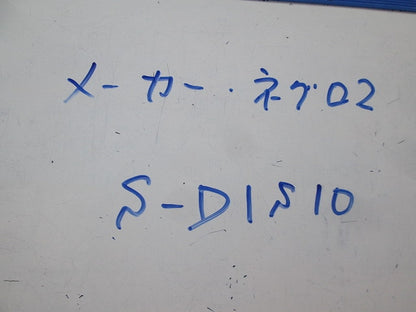 メーカー・ネグロス
S-D1S10